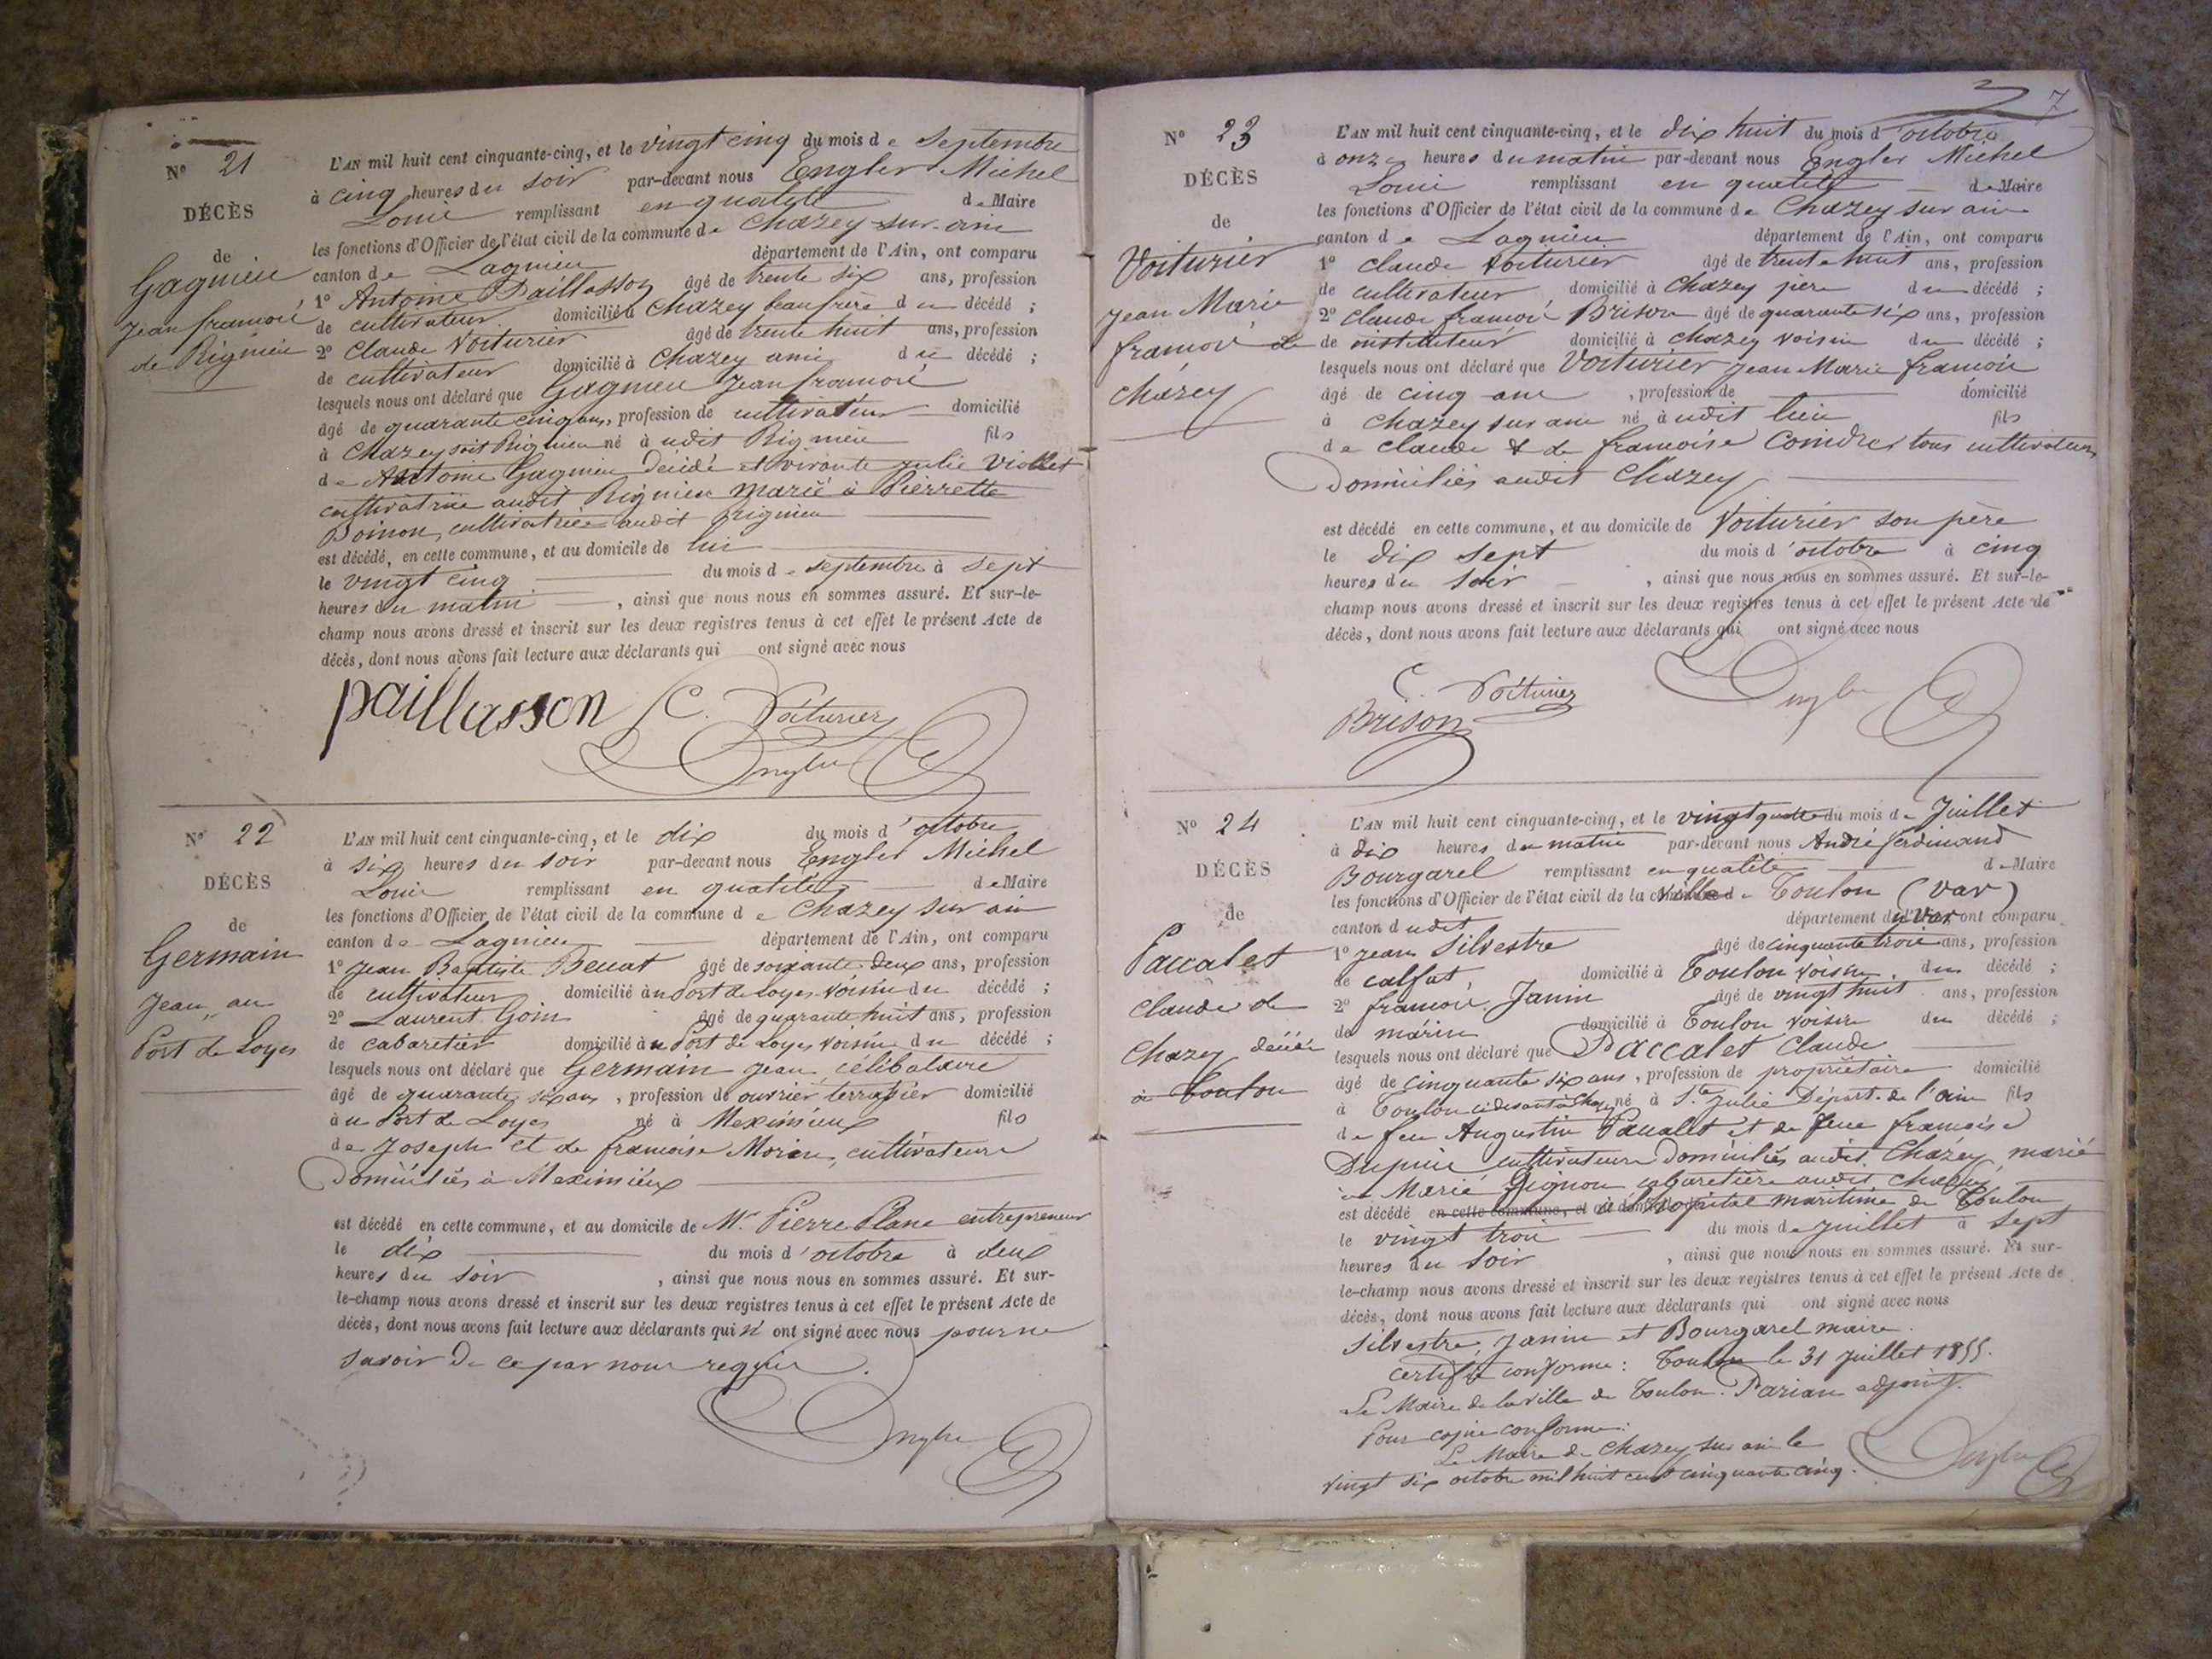 N° 21
DÉCÈS
de
Gagnieu
Jean françois
de Rignieu
L'AN mil huit cent cinquante-cinq, et le vingt cinq du mois de Septembre
à cinq heures du soir par-devant nous Engler Michel
Louis remplissant en qualité de Maire
les fonctions d'Officier de l'état civil de la commune de Chazey-sur-ain
canton de Lagnieu département de l'Ain, ont comparu
1° Antoine Paillasson âgé de trente six ans, profession
de cultivateur domicilié à Chazey beau frère du décédé ;
2° Claude Voiturier âgé de trente huit ans, profession
de cultivateur domicilié à Chazey ami du décédé ;
lesquels nous ont déclaré que Gagnieu Jean françois
âgé de quarante cinq ans, profession de cultivateur domicilié
à Chazey soit Rignieu né à udit Rignieu fils
de Antoine Gagnieu décédé et vivante Julie Viollet
cultivatrice audit Rignieu marié à Pierrette
Boinon, cultivatrice audit Rignieu
est décédé, en cette commune, et au domicile de lui
le vingt cinq du mois de septembre à sept
heures du matin , ainsi que nous nous en sommes assuré. Et sur-le-
champ nous avons dressé et inscrit sur les deux registres tenus à cet effet le présent Acte de
décès, dont nous avons fait lecture aux déclarants qui ont signé avec nous
paillasson C. Voiturier
Engler
N° 22
DÉCÈS
de
Germain
Jean, au
Port de Loyes
L'AN mil huit cent cinquante-cinq, et le dix du mois d'octobre
à six heures du soir par-devant nous Engler Michel
Louis remplissant en qualité de Maire
les fonctions d'Officier de l'état civil de la commune de Chazey sur ain
canton de Lagnieu département de l'Ain, ont comparu
1° Jean Baptiste Beccat âgé de soixante deux ans, profession
de cultivateur domicilié au Port de Loyes voisin du décédé ;
2° Laurent Goin âgé de quarante huit ans, profession
de cabaretier domicilié au Port de Loyes voisin du décédé ;
lesquels nous ont déclaré que Germain Jean, célibataire
âgé de quarante six ans, profession de ouvrier terrassier domicilié
à u Port de Loyes né à Meximieux fils
de Joseph et de françoise Morin, cultivateurs
Domiciliés à Meximieux
est décédé en cette commune, et au domicile de Mr Pierre Plane entrepreneur
le dix du mois d'octobre à deux
heures du soir , ainsi que nous nous en sommes assuré. Et sur-
le-champ nous avons dressé et inscrit sur les deux registres tenus à cet effet le présent Acte de
décès, dont nous avons fait lecture aux déclarants qui n' ont signé avec nous pour ne
savoir de ce par nous requis.
Engler
7
N° 23
DÉCÈS
de
Voiturier
Jean Marie
françois de
Chazey
L'AN mil huit cent cinquante-cinq, et le dix huit du mois d'octobre
à onze heures du matin par-devant nous Engler Michel
Louis remplissant en qualité de Maire
les fonctions d'Officier de l'état civil de la commune de Chazey sur ain
canton de Lagnieu département de l'Ain, ont comparu
1° Claude Voiturier âgé de trente huit ans, profession
de cultivateur domicilié à Chazey père du décédé ;
2° Claude françois Brison âgé de quarante six ans, profession
de instituteur domicilié à Chazey voisin du décédé ;
lesquels nous ont déclaré que Voiturier Jean Marie françois
âgé de cinq ans , profession de domicilié
à Chazey sur ain né à udit lieu fils
de Claude & de françoise Coindre, tous cultivateurs
Domiciliés audit Chazey
est décédé en cette commune, et au domicile de Voiturier son père
le dix sept du mois d'octobre à cinq
heures du soir , ainsi que nous nous en sommes assuré. Et sur-le-
champ nous avons dressé et inscrit sur les deux registres tenus à cet effet le présent Acte de
décès, dont nous avons fait lecture aux déclarants qui ont signé avec nous
C. Voiturier
Brison
Engler
N° 24
DÉCÈS
de
Paccalet
Claude de
Chazey décédé
à Toulon
L'AN mil huit cent cinquante-cinq, et le vingt quatre du mois de Juillet
à dix heures du matin par-devant nous André ferdinand
Bourgarel remplissant en qualité de Maire
les fonctions d'Officier de l'état civil de la ville de Toulon (Var)
canton d udit département du Var, ont comparu
1° Jean Silvestre âgé de cinquante trois ans, profession
de calfat, domicilié à Toulon voisin du décédé ;
2° françois Janin âgé de vingt huit ans, profession
de marin domicilié à Toulon voisin du décédé ;
lesquels nous ont déclaré que Paccalet Claude
âgé de cinquante six ans, profession de propriétaire domicilié
à Toulon ci devant à Chazey né à Ste Julie Départ. de l'ain fils
de feu Augustin Paccalet et de feue françoise
Dupuis cultivateurs Domiciliés audit Chazey, marié
à Marie Gignon cabaretière audit Chazey
est décédé en cette commune, et à l'hopital maritime de Toulon
le vingt trois du mois de Juillet à sept
heures du soir , ainsi que nous nous en sommes assuré. Et sur-
le-champ nous avons dressé et inscrit sur les deux registres tenus à cet effet le présent Acte de
décès, dont nous avons fait lecture aux déclarants qui ont signé avec nous
Silvestre, Janin et Bourgarel maire.
Certifié conforme : Toulon le 31 Juillet 1855.
Le Maire de la ville de Toulon. Parian adjoint.
Pour copie conforme :
Le Maire de Chazey sur ain le
vingt six octobre mil huit cent cinquante cinq.
Engler